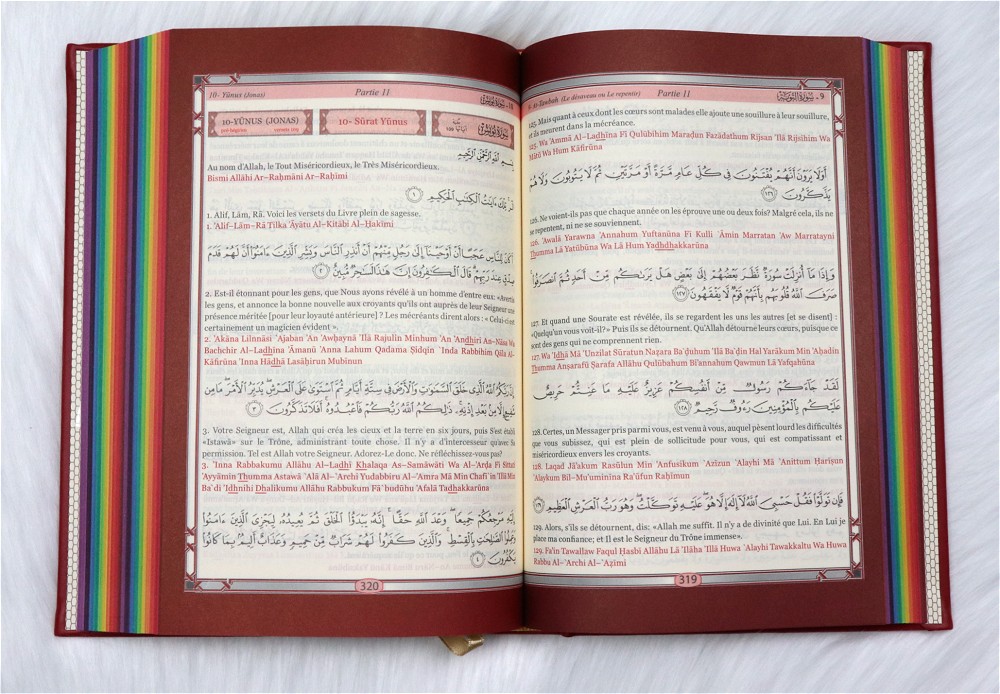 9- At-Tawbah (Le désaveu ou Le repentir)
Partie 11
٩ - سورة التوبة
125. Mais quant à ceux dont les cœurs sont malades elle ajoute une souillure à leur souillure,
et ils meurent dans la mécréance.
125. Wa 'Ammā Al–Ladhīna Fī Qulūbihim Maraḍun Fazādathum Rijsan 'Ilá Rijsihim Wa
Mātū Wa Hum Kāfirūna
أَوَلَا يَرَوْنَ أَنَّهُمْ يُفْتَنُونَ فِي كُلِّ عَامٍ مَّرَّةً أَوْ مَرَّتَيْنِ ثُمَّ لَا يَتُوبُونَ وَلَا هُمْ
يَذَّكَّرُونَ ١٢٦
126. Ne voient-ils pas que chaque année on les éprouve une ou deux fois? Malgré cela, ils ne
se repentent, ni ne se souviennent.
126. 'Awalā Yarawna 'Annahum Yuftanūna Fī Kulli `Āmin Marratan 'Aw Marratayni
Thumma Lā Yatūbūna Wa Lā Hum Yadhdhakkarūna
وَإِذَا مَا أُنزِلَتْ سُورَةٌ نَّظَرَ بَعْضُهُمْ إِلَىٰ بَعْضٍ هَلْ يَرَىٰكُم مِّنْ أَحَدٍ ثُمَّ ٱنصَرَفُوا۟
صَرَفَ ٱللَّهُ قُلُوبَهُم بِأَنَّهُمْ قَوْمٌ لَّا يَفْقَهُونَ ١٢٧
127. Et quand une Sourate est révélée, ils se regardent les uns les autres [et se disent] :
«Quelqu'un vous voit-il?» Puis ils se détournent. Qu'Allah détourne leurs cœurs, puisque ce
sont des gens qui ne comprennent rien.
127. Wa 'Idhā Mā 'Unzilat Sūratun Naẓara Ba`ḍuhum 'Ilá Ba`ḍin Hal Yarākum Min 'Aḥadin
Thumma Anṣarafū Ṣarafa Allāhu Qulūbahum Bi'annahum Qawmun Lā Yafqahūna
لَقَدْ جَآءَكُمْ رَسُولٌ مِّنْ أَنفُسِكُمْ عَزِيزٌ عَلَيْهِ مَا عَنِتُّمْ حَرِيصٌ
عَلَيْكُم بِٱلْمُؤْمِنِينَ رَءُوفٌ رَّحِيمٌ ١٢٨
128. Certes, un Messager pris parmi vous, est venu à vous, auquel pèsent lourd les difficultés
que vous subissez, qui est plein de sollicitude pour vous, qui est compatissant et
miséricordieux envers les croyants.
128. Laqad Jā'akum Rasūlun Min 'Anfusikum `Azīzun `Alayhi Mā `Anittum Ḥarīṣun
`Alaykum Bil–Mu'uminīna Ra'ūfun Raḥīmun
فَإِن تَوَلَّوْا۟ فَقُلْ حَسْبِىَ ٱللَّهُ لَآ إِلَٰهَ إِلَّا هُوَ عَلَيْهِ تَوَكَّلْتُ وَهُوَ رَبُّ ٱلْعَرْشِ ٱلْعَظِيمِ ١٢٩
129. Alors, s'ils se détournent, dis: «Allah me suffit. Il n'y a de divinité que Lui. En Lui je
place ma confiance; et Il est le Seigneur du Trône immense».
129. Fa'in Tawallaw Faqul Ḥasbī Allāhu Lā 'Ilāha 'Illā Huwa `Alayhi Tawakkaltu Wa Huwa
Rabbu Al–`Archi Al–`Aẓīmi
319
10- Yūnus (Jonas)
Partie 11
١٠ - سورة يونس
10-YŪNUS (JONAS)
10- Sūrat Yūnus
سورة يونس
بِسْمِ ٱللَّهِ ٱلرَّحْمَٰنِ ٱلرَّحِيمِ
Au nom d'Allah, le Tout Miséricordieux, le Très Miséricordieux.
Bismi Allāhi Ar–Raḥmāni Ar–Raḥīmi
الٓر تِلْكَ ءَايَٰتُ ٱلْكِتَٰبِ ٱلْحَكِيمِ ١
1. Alif, Lām, Rā. Voici les versets du Livre plein de sagesse.
1. 'Alif–Lām–Rā Tilka 'Āyātu Al–Kitābi Al–Ḥakīmi
أَكَانَ لِلنَّاسِ عَجَبًا أَنْ أَوْحَيْنَآ إِلَىٰ رَجُلٍ مِّنْهُمْ أَنْ أَنذِرِ ٱلنَّاسَ وَبَشِّرِ ٱلَّذِينَ ءَامَنُوٓا۟ أَنَّ لَهُمْ قَدَمَ
صِدْقٍ عِندَ رَبِّهِمْ قَالَ ٱلْكَٰفِرُونَ إِنَّ هَٰذَا لَسَٰحِرٌ مُّبِينٌ ٢
2. Est-il étonnant pour les gens, que Nous ayons révélé à un homme d'entre eux: «Avertis
les gens, et annonce la bonne nouvelle aux croyants qu'ils ont auprès de leur Seigneur une
présence méritée [pour leur loyauté antérieure] ? Les mécréants dirent alors : « Celui-ci est
certainement un magicien évident ».
2. 'Akāna Lilnnāsi `Ajabān 'An 'Awḥaynā 'Ilá Rajulin Minhum 'An 'Andhiri An–Nāsa Wa
Bachchir Al–Ladhīna 'Āmanū 'Anna Lahum Qadama Ṣidqin `Inda Rabbihim Qāla Al–
Kāfirūna 'Inna Hādhā Lasāḥirun Mubīnun
إِنَّ رَبَّكُمُ ٱللَّهُ ٱلَّذِى خَلَقَ ٱلسَّمَٰوَٰتِ وَٱلْأَرْضَ فِى سِتَّةِ أَيَّامٍ ثُمَّ ٱسْتَوَىٰ عَلَى ٱلْعَرْشِ يُدَبِّرُ ٱلْأَمْرَ مَا مِن
شَفِيعٍ إِلَّا مِنۢ بَعْدِ إِذْنِهِۦ ذَٰلِكُمُ ٱللَّهُ رَبُّكُمْ فَٱعْبُدُوهُ أَفَلَا تَذَكَّرُونَ ٣
3. Votre Seigneur est, Allah qui créa les cieux et la terre en six jours, puis S'est établi
«Istawā» sur le Trône, administrant toute chose. Il n'y a d'intercesseur qu'avec Sa
permission. Tel est Allah votre Seigneur. Adorez-Le donc. Ne réfléchissez-vous pas?
3. 'Inna Rabbakumu Allāhu Al–Ladhī Khalaqa As–Samāwāti Wa Al–'Arḍa Fī Sittati
'Ayyāmin Thumma Astawá `Alá Al–`Archi Yudabbiru Al–'Amra Mā Min Chafī`in 'Illā Min
Ba`di 'Idhnihi Dhalikumu Allāhu Rabbukum Fā`budūhu 'Afalā Tadhakkarūna
إِلَيْهِ مَرْجِعُكُمْ جَمِيعًا وَعْدَ ٱللَّهِ حَقًّا إِنَّهُۥ يَبْدَؤُا۟ ٱلْخَلْقَ ثُمَّ يُعِيدُهُۥ لِيَجْزِىَ ٱلَّذِينَ ءَامَنُوا۟
وَعَمِلُوا۟ ٱلصَّٰلِحَٰتِ بِٱلْقِسْطِ وَٱلَّذِينَ كَفَرُوا۟ لَهُمْ شَرَابٌ مِّنْ حَمِيمٍ وَعَذَابٌ أَلِيمٌۢ بِمَا كَانُوا۟
يَكْفُرُونَ ٤
320